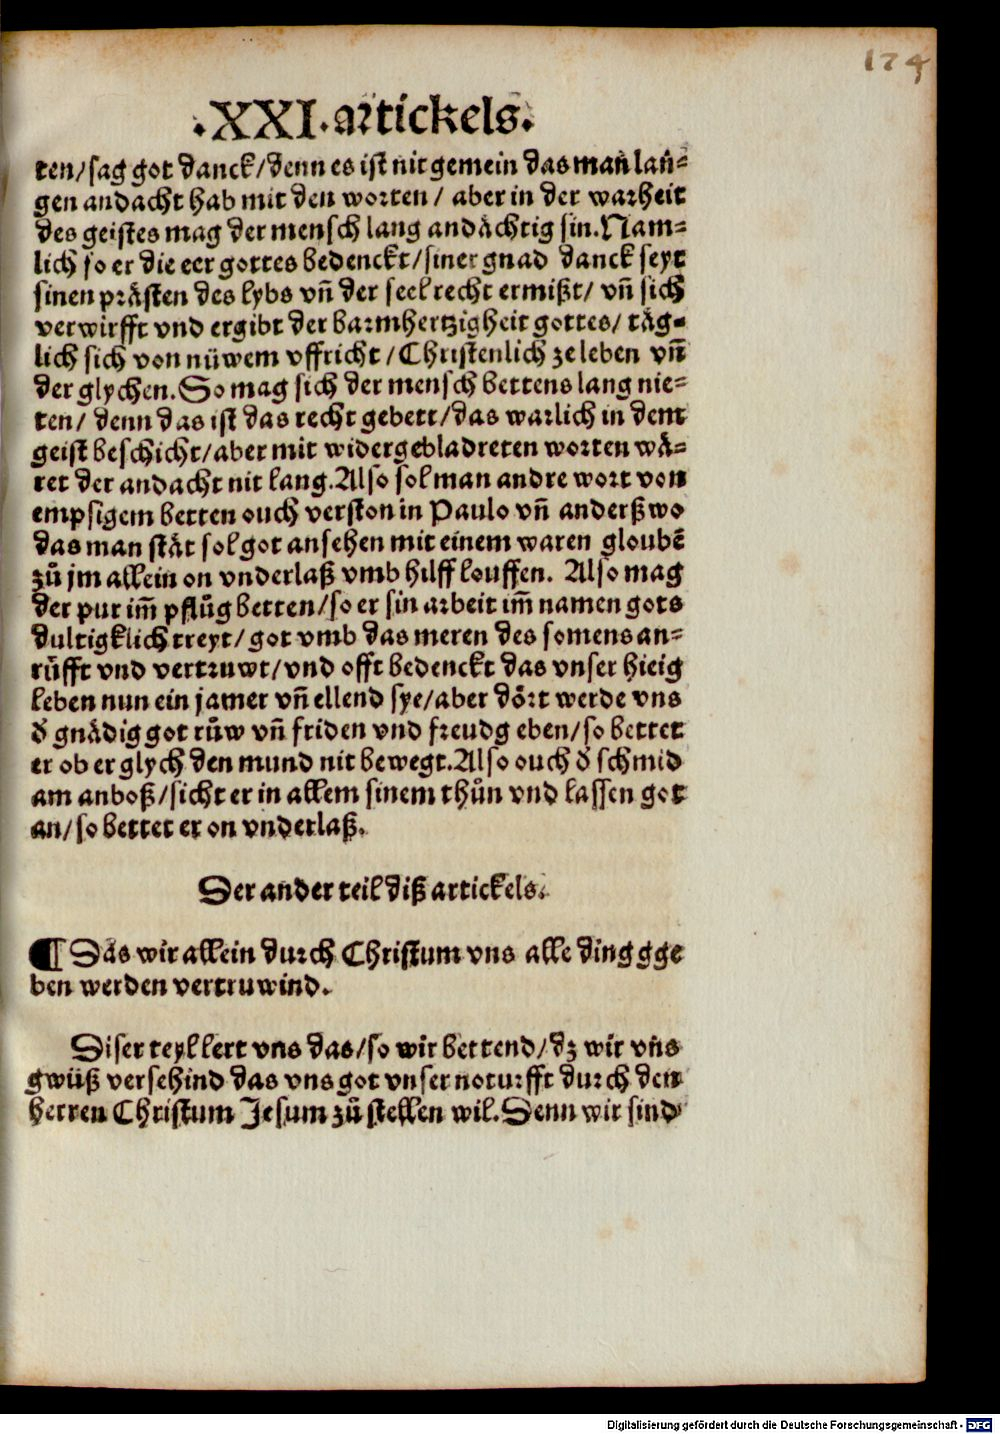 174
.XXI. artickels.
ten/sag got danck/denn es ist nit gemein das man̄ lan̄⸗
gen andacht hab mit den worten/ aber in der warheit
des geistes mag der mensch lang andächtig sin. Nam⸗
lich so er die eer gottes bedenckt/siner gnad danck seyt
sinen prästen des lybs vn̄ der seel recht ermißt/ vn̄ sich
verwirfft vnd ergibt der barmhertzigheit gottes/ täg⸗
lich sich von nüwem vffricht/Christenlich ze leben vn̄
der glychen. So mag sich der mensch bettens lang nie⸗
ten/ denn das ist das recht gebett/das warlich in dem
geist beschicht/aber mit widergebladreten worten wä⸗
ret der andacht nit lang. Also sol man andre wort von
empsigem betten ouch verston in Paulo vn̄ anderßwo
das man stät sol got ansehen mit einem waren gloubē
zů jm allein on vnderlaß vmb hilff louffen. Also mag
der pur im̄ pflůg betten/so er sin arbeit im̄ namen gots
dultigklich treyt/ got vmb das meren des somens an⸗
růfft vnd vertruwt/vnd offt bedenckt das vnser hieig
leben nun ein jamer vn̄ ellend sye/aber dört werde vns
d̕ gnädig got růw vn̄ friden vnd freudg eben/so bettet
er ob er glych den mund nit bewegt. Also ouch d̕ schmid
am anboß/sicht er in allem sinem thůn vnd lassen got
an/so bettet er on vnderlaß.
Der ander teil diß artickels.
¶ Das wir allein durch Christum vns alle ding gge
ben werden vertruwind.
Diser teyl lert vns das/so wir bettend/dz wir vns
gwüß versehind das vns got vnser noturfft durch den
herren Christum Jesum zů stellen wil. Denn wir sind
Digitalisierung gefördert durch die Deutsche Forschungsgemeinschaft - DFG